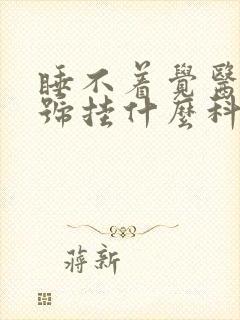 睡不着覺醫
號挂什麼科
蔣新